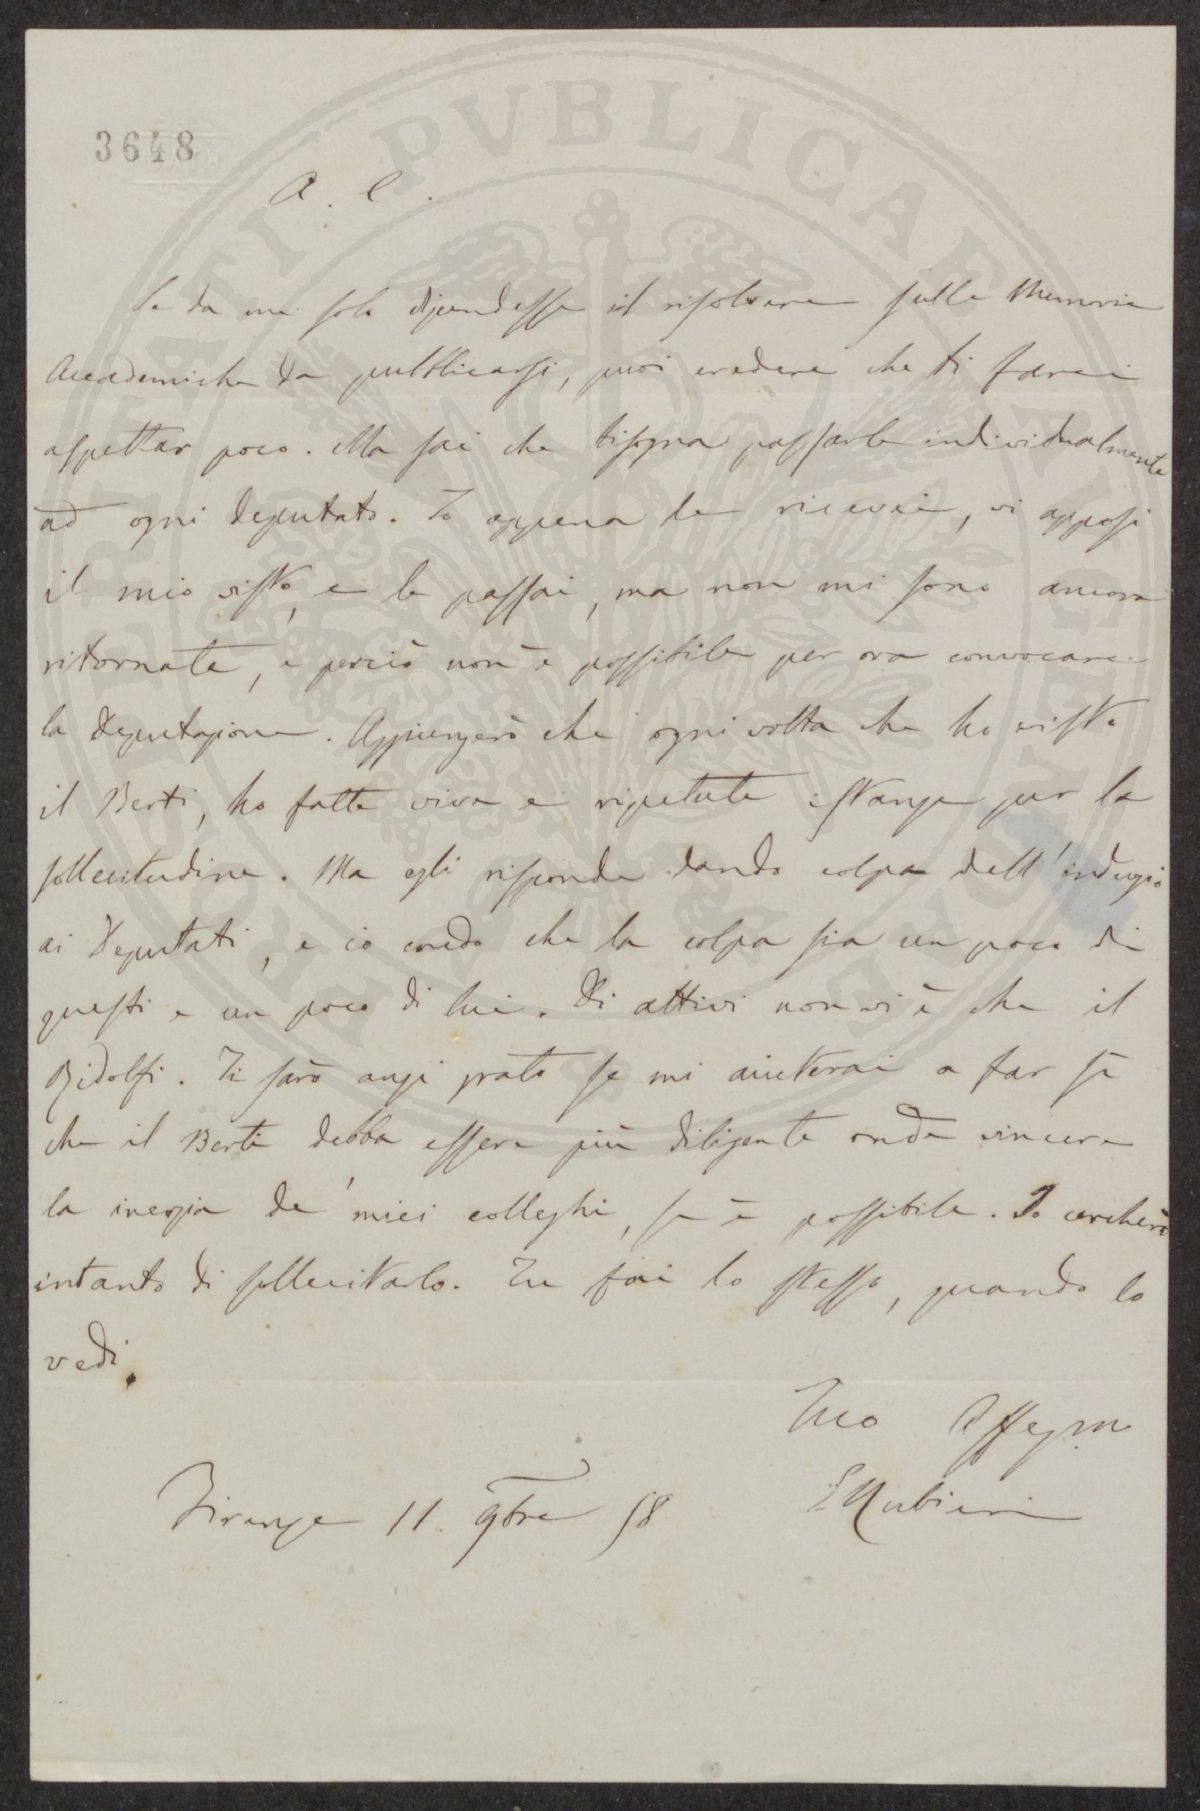 3648
A. C.
Se da me solo dipendesse il risolvere sulle Memorie
Accademiche da pubblicarsi, puoi credere che ti farei
aspettar poco. Ma sai che bisogna passarle individualmente
ad ogni deputato. Io appena le ricevei, vi apposi
il mio visto, e le passai, ma non mi sono ancora
ritornate, e perciò non è possibile per ora convocare
la Deputazione. Aggiungerò che ogni volta che ho visto
il Berti, ho fatte vive e ripetute istanze per la
sollecitudine. Ma egli risponde dando colpa dell'indugio
ai Deputati, e io credo che la colpa sia un poco di
questi e un poco di lui. Di attivi non vi è che il
Ridolfi. Ti sarò anzi grato se mi aiuterai a far sì
che il Berti debba essere più diligente onde vincere
la inerzia de' miei colleghi, se è possibile. Io cercherò
intanto di sollecitarlo. Tu fai lo stesso, quando lo
vedi.
Tuo Affezmo
Firenze 11. 9bre 58
E Rubieri
PUBLICAE